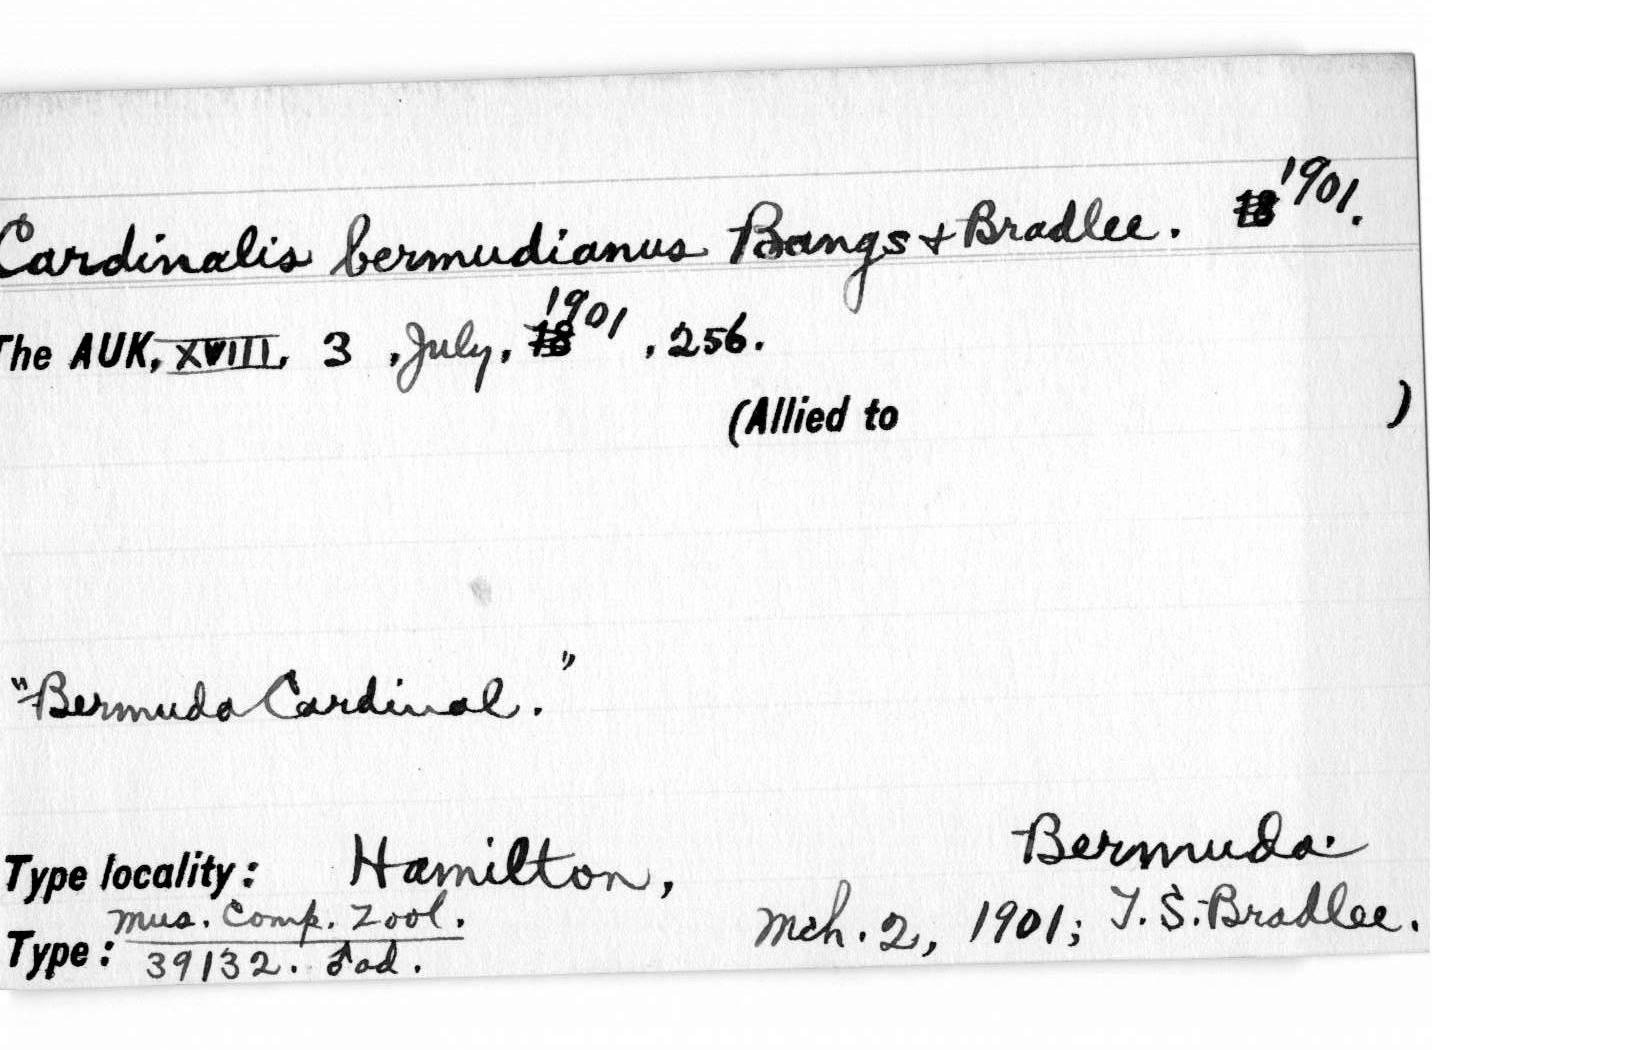 Cardinalis bermudianus Bangs + Bradlee. 1901.
The AUK, XVIII, 3, July, 1901, 256.
(Allied to )
"Bermuda Cardinal."
Type locality: Hamilton, Bermuda.
Type: Mus. Comp. Zool. 39132. ♂ ad. Mch. 2, 1901; T. S. Bradlee.